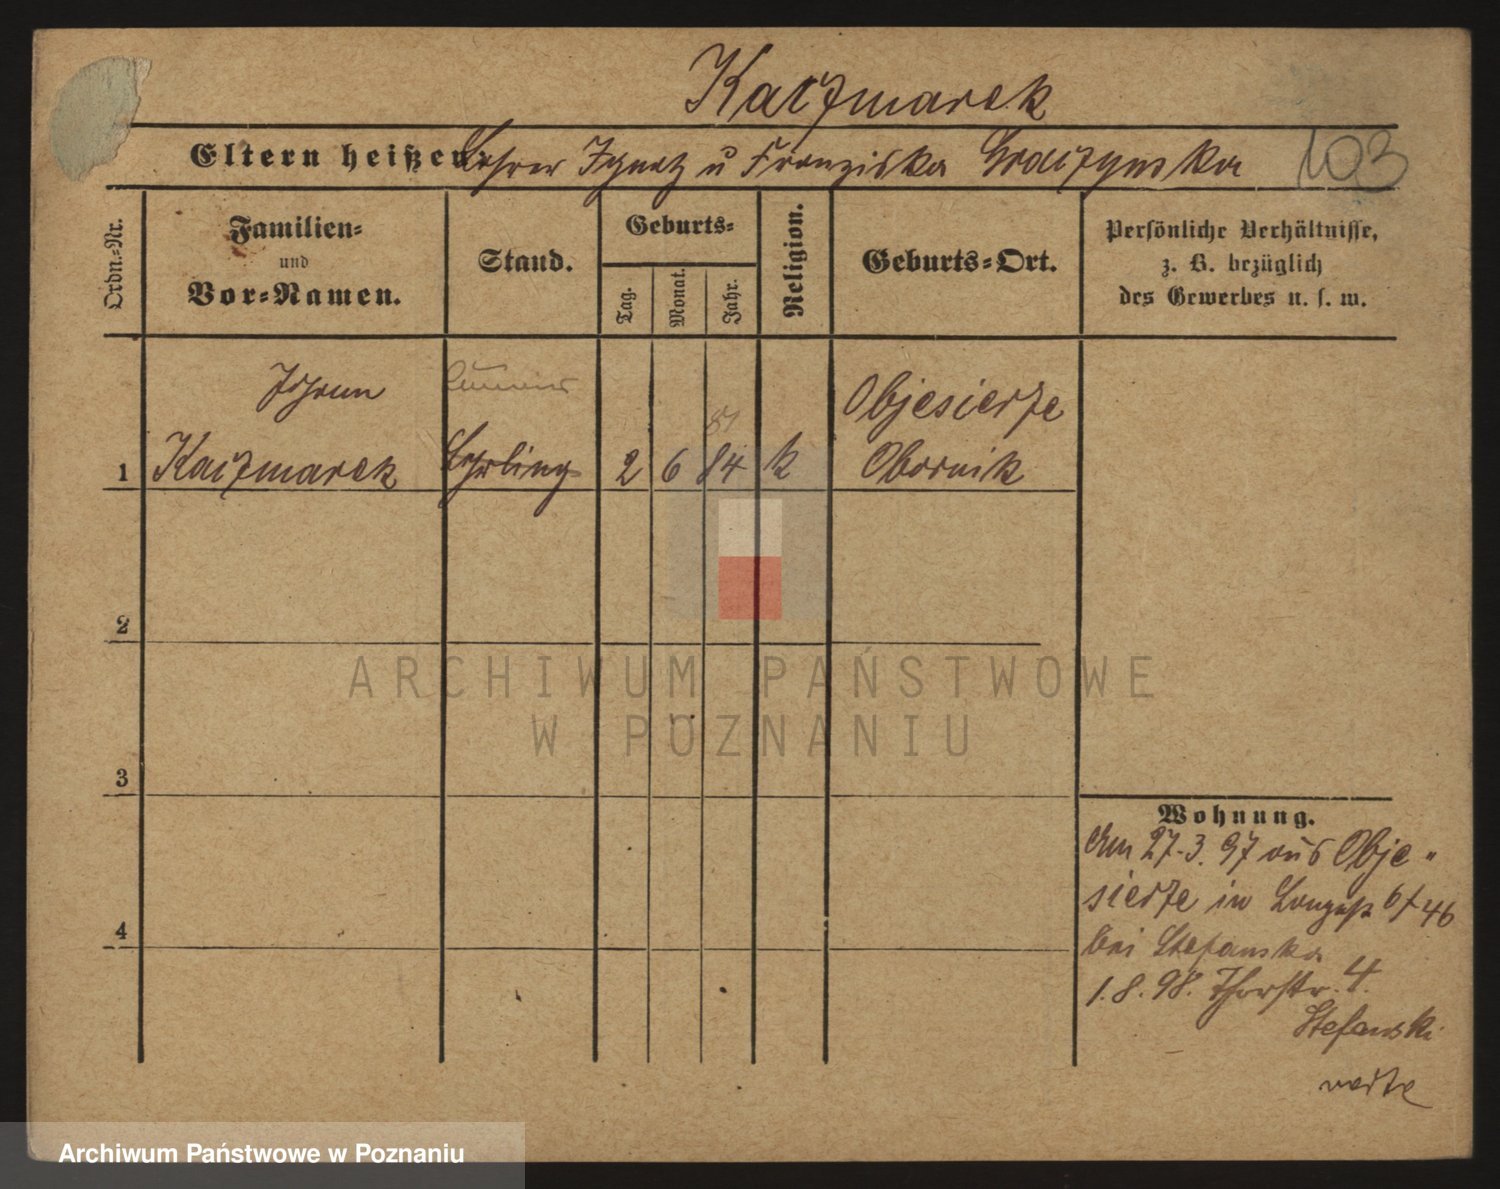 Kaczmarek
Eltern heißen: Lehrer Ignatz u Franziska Graczynska
103
Ordn.-Nr.
Familien-
und
Vor-Namen.
Stand.
Geburts-
Tag.
Monat.
Jahr.
Religion.
Geburts-Ort.
Persönliche Verhältnisse,
z. B. bezüglich
des Gewerbes u. s. w.
Johann
Objesierze
1 Kaczmarek Lehrling 2 6 84 k Obornik
2
3
4
Wohnung.
Am 27.3.97 aus Obje-
sierze in 6/7 46
bei Stefanska
1.8.98. Thorstr. 4.
Stefanski
ARCHIWUM PAŃSTWOWE
W POZNANIU
Archiwum Państwowe w Poznaniu